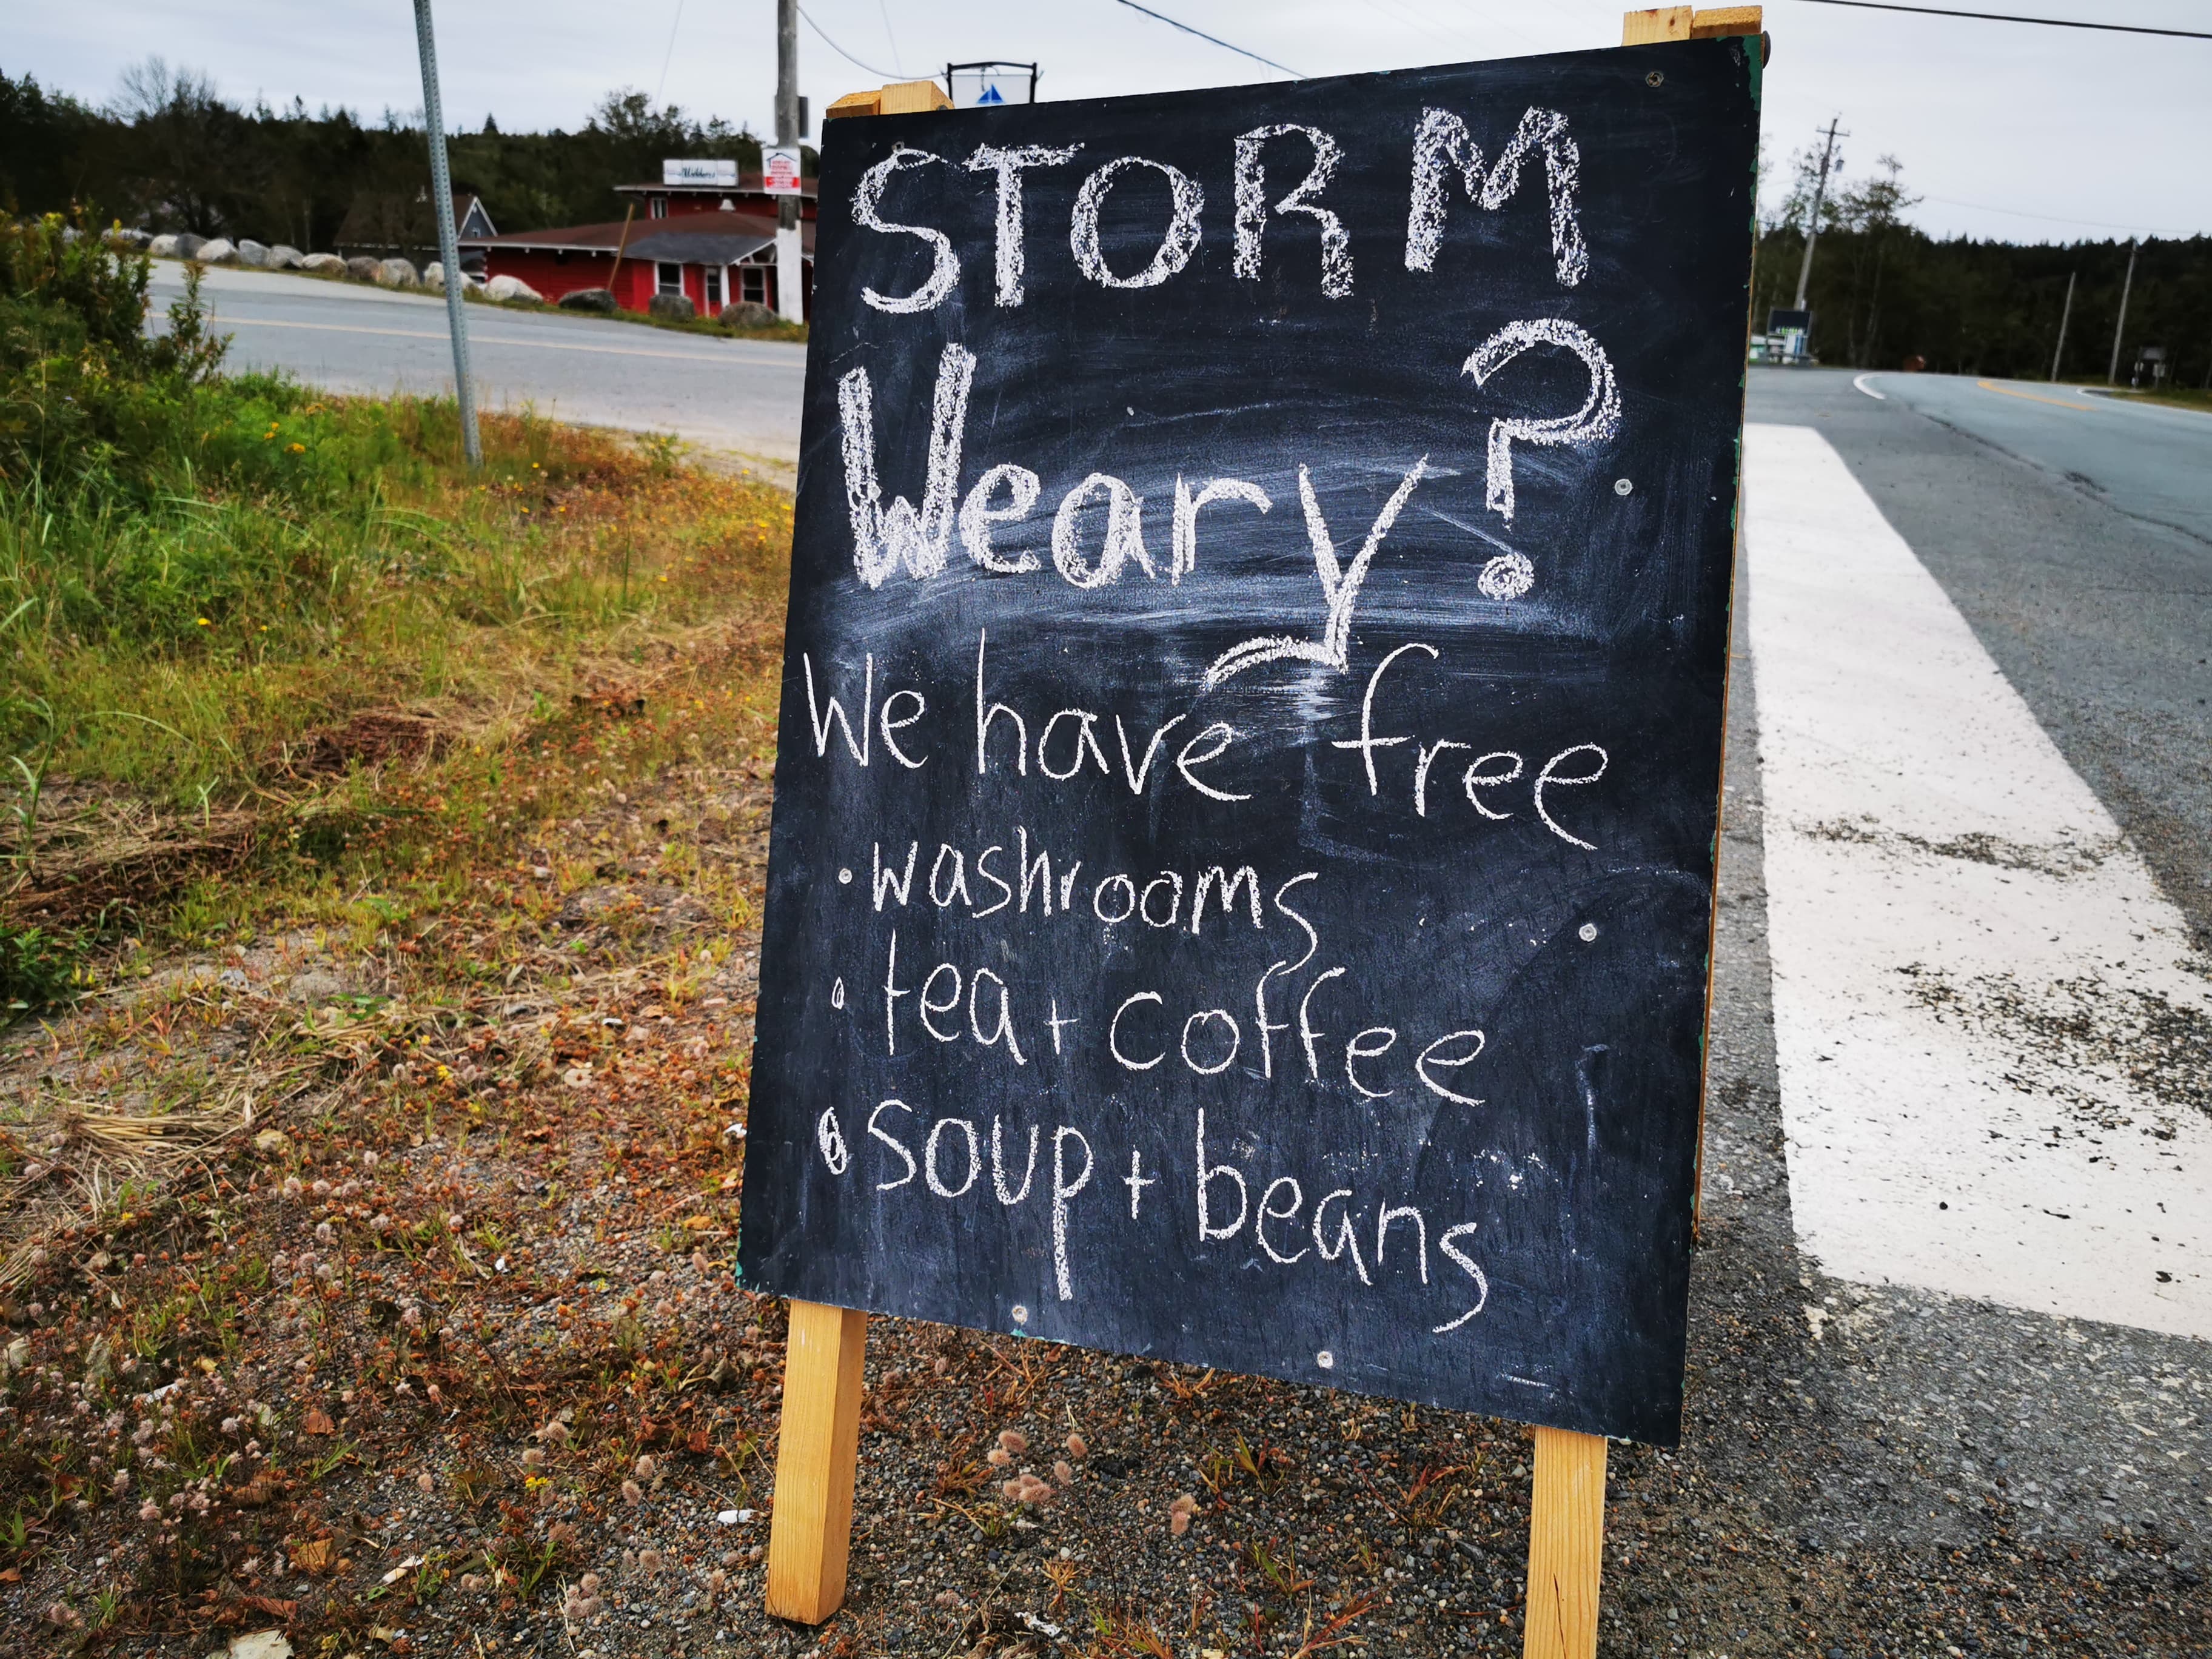 STORM
Weary?
We have free
• washrooms
• tea + coffee
• soup + beans